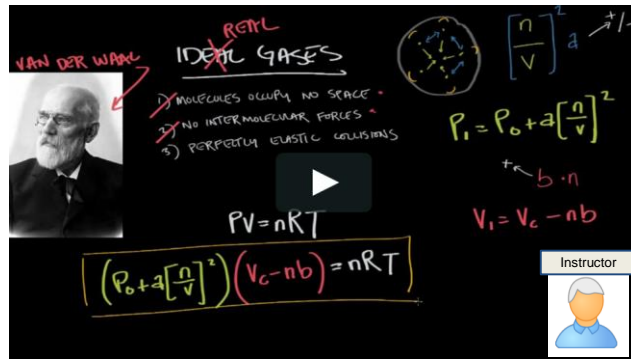 REAL
IDEAL GASES
VAN DER WAAL
1) MOLECULES OCCUPY NO SPACE
2) NO INTERMOLECULAR FORCES
3) PERFECTLY ELASTIC COLLISIONS
PV=nRT
(P₀+a[n/V]²)(Vc-nb)=nRT
[n/V]² a
+/-
P₁=P₀+a[n/V]²
+
b·n
V₁=Vc-nb
Instructor